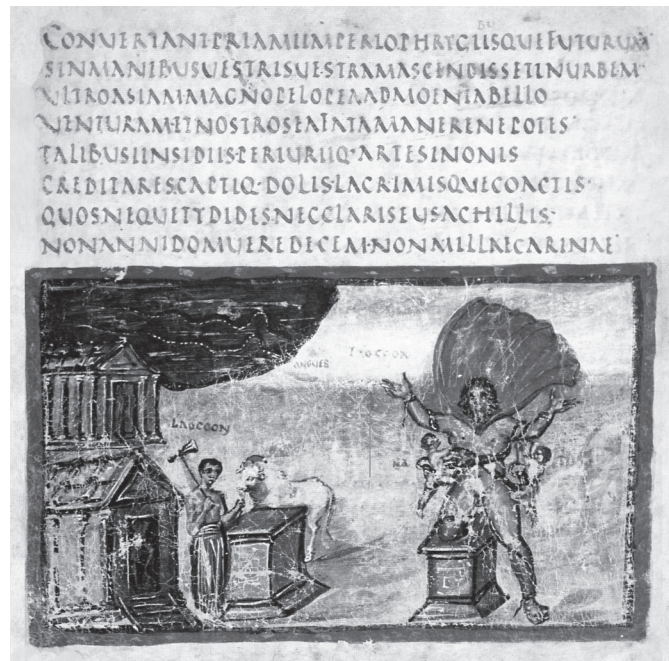 BU
CONUERTANTPRIAMIIMPERIOPHRYGIISQUEFUTURUM
SINMANIBUSUESTRISUESTRAMASCENDISSETINURBEM
ULTROASIAMMAGNOPELOPEAADMOENIABELLO
UENTURAMETNOSTROSEAFATAMANERENEPOTES
TALIBUSINSIDIIS·PERIURIIQ·ARTESINONIS
CREDITARES·CAPTIQ·DOLIS·LACRIMISQUECOACTIS·
QUOSNEQUETYDIDESNECLARISEUSACHILLIS·
NONANNIDOMUEREDECEM·NONMILLECARINAE
LAOCOON
ANGUES
LAOCOON
NA